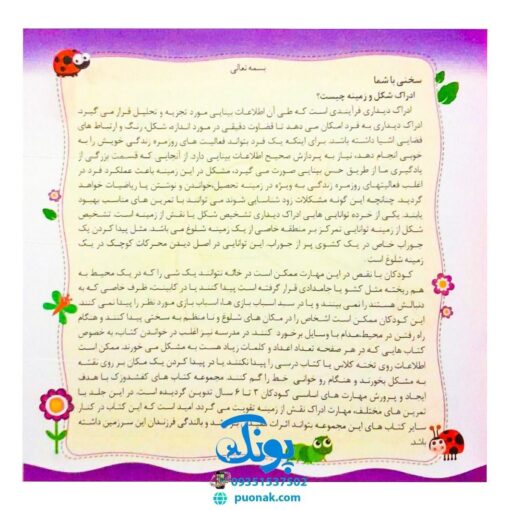 بسمه تعالی
سخنی با شما
ادراک شکل و زمینه چیست؟
ادراک دیداری فرآیندی است که طی آن اطلاعات بینایی مورد تجزیه و تحلیل قرار می گیرد.
ادراک دیداری به فرد امکان می دهد تا قضاوت دقیقی در مورد اندازه، شکل، رنگ و ارتباط های
فضایی اشیا داشته باشد. برای اینکه یک فرد بتواند فعالیت های روزمره زندگی خویش را به
خوبی انجام دهد، نیاز به پردازش صحیح اطلاعات بینایی دارد. از آنجایی که قسمت بزرگی از
یادگیری ما از طریق حس بینایی صورت می گیرد، مشکل در این زمینه باعث عملکرد فرد در
اغلب فعالیتهای روزمره زندگی به ویژه در زمینه تحصیل،خواندن و نوشتن یا ریاضیات خواهد
گردید. چنانچه این گونه مشکلات زود شناسایی شوند می توانند با تمرین های مناسب بهبود
یابند. یکی از خرده توانایی هایی ادراک دیداری تشخیص شکل یا نقش از زمینه است. تشخیص
شکل از زمینه توانایی تمرکز بر منطقه خاصی از یک زمینه شلوغ می باشد. مثل پیدا کردن یک
جوراب خاص در یک کشوی پر از جوراب. این توانایی در اصل دیدن محرکات کوچک در یک
زمینه شلوغ است.
کودکان با نقص در این مهارت ممکن است در خانه نتوانند یک شی را که در یک محیط به
هم ریخته مثل کشو یا جامدادی قرار گرفته است پیدا کنند یا در کابینت ظرف خاصی که به
دنبالش هستند را نمی بینند و یا در سبد اسباب بازی ها، اسباب بازی مورد نظر را پیدا نمی کنند.
این کودکان ممکن است اشخاص را در مکان های شلوغ و نا منظم به سختی پیدا کنند و هنگام
راه رفتن در محیط،مدام با وسایل برخورد کنند. در مدرسه نیز اغلب در خواندن کتاب، به خصوص
کتاب هایی که در هر صفحه تعداد اعداد و کلمات زیاد هست به مشکل می خورند. ممکن است
اطلاعات روی تخته کلاس یا کتاب درسی را پیدا نکنند یا در پیدا کردن یک مکان بر روی نقشه
به مشکل بخورند و هنگام رو خوانی خط را گم کنند. مجموعه کتاب های کفشدوزک با هدف
ایجاد و پرورش مهارت های اساسی کودکان ۳ تا ۶ سال تدوین گردیده است. در این جلد با
تمرین های مختلف، مهارت ادراک نقش از زمینه تقویت می گردد. امید است که این کتاب در کنار
سایر کتاب های این مجموعه بتواند اثرات و بالندگی فرزندان این سرزمین داشته
باشد.
پونک
09351537502
puonak.com